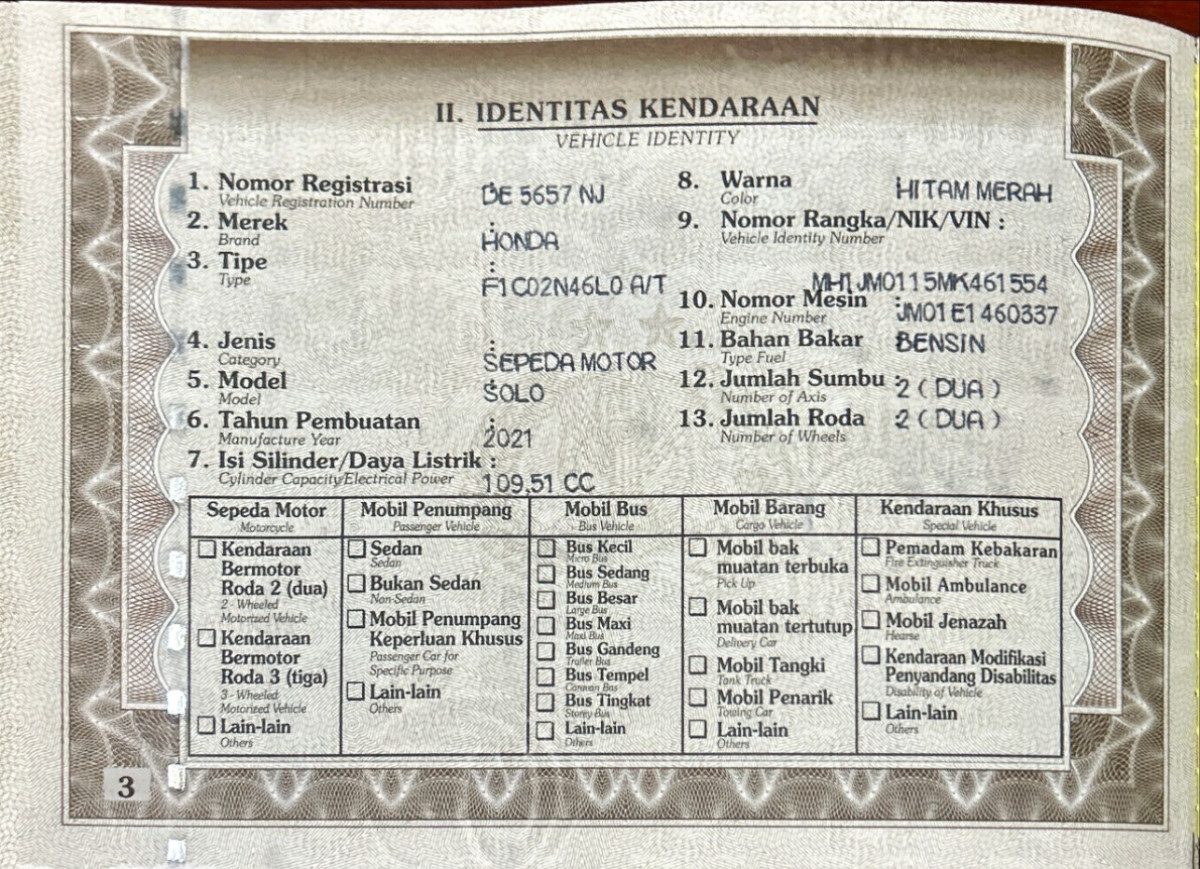 II. IDENTITAS KENDARAAN
VEHICLE IDENTITY
1. Nomor Registrasi : BE 5657 NJ
Vehicle Registration Number
2. Merek : HONDA
Brand
3. Tipe : F1C02N46L0 A/T
Type
4. Jenis : SEPEDA MOTOR
Category
5. Model : SOLO
Model
6. Tahun Pembuatan : 2021
Manufacture Year
7. Isi Silinder/Daya Listrik : 109,51 CC
Cylinder Capacity/Electrical Power
8. Warna : HITAM MERAH
Color
9. Nomor Rangka/NIK/VIN :
Vehicle Identity Number
MH1JM0115MK461554
10. Nomor Mesin : JM01E1460337
Engine Number
11. Bahan Bakar : BENSIN
Type Fuel
12. Jumlah Sumbu : 2 ( DUA )
Number of Axis
13. Jumlah Roda : 2 ( DUA )
Number of Wheels
Sepeda Motor
Motorcycle
Kendaraan
Bermotor
Roda 2 (dua)
2 - Wheeled
Motorized Vehicle
Kendaraan
Bermotor
Roda 3 (tiga)
3 - Wheeled
Motorized Vehicle
Lain-lain
Others
Mobil Penumpang
Passenger Vehicle
Sedan
Sedan
Bukan Sedan
Non-Sedan
Mobil Penumpang
Keperluan Khusus
Passenger Car for
Specific Purpose
Lain-lain
Others
Mobil Bus
Bus Vehicle
Bus Kecil
Micro Bus
Bus Sedang
Medium Bus
Bus Besar
Large Bus
Bus Maxi
Maxi Bus
Bus Gandeng
Trailer Bus
Bus Tempel
Caravan Bus
Bus Tingkat
Storey Bus
Lain-lain
Others
Mobil Barang
Cargo Vehicle
Mobil bak
muatan terbuka
Pick Up
Mobil bak
muatan tertutup
Delivery Car
Mobil Tangki
Tank Truck
Mobil Penarik
Towing Car
Lain-lain
Others
Kendaraan Khusus
Special Vehicle
Pemadam Kebakaran
Fire Extinguisher Truck
Mobil Ambulance
Ambulance
Mobil Jenazah
Hearse
Kendaraan Modifikasi
Penyandang Disabilitas
Disability of Vehicle
Lain-lain
Others
3